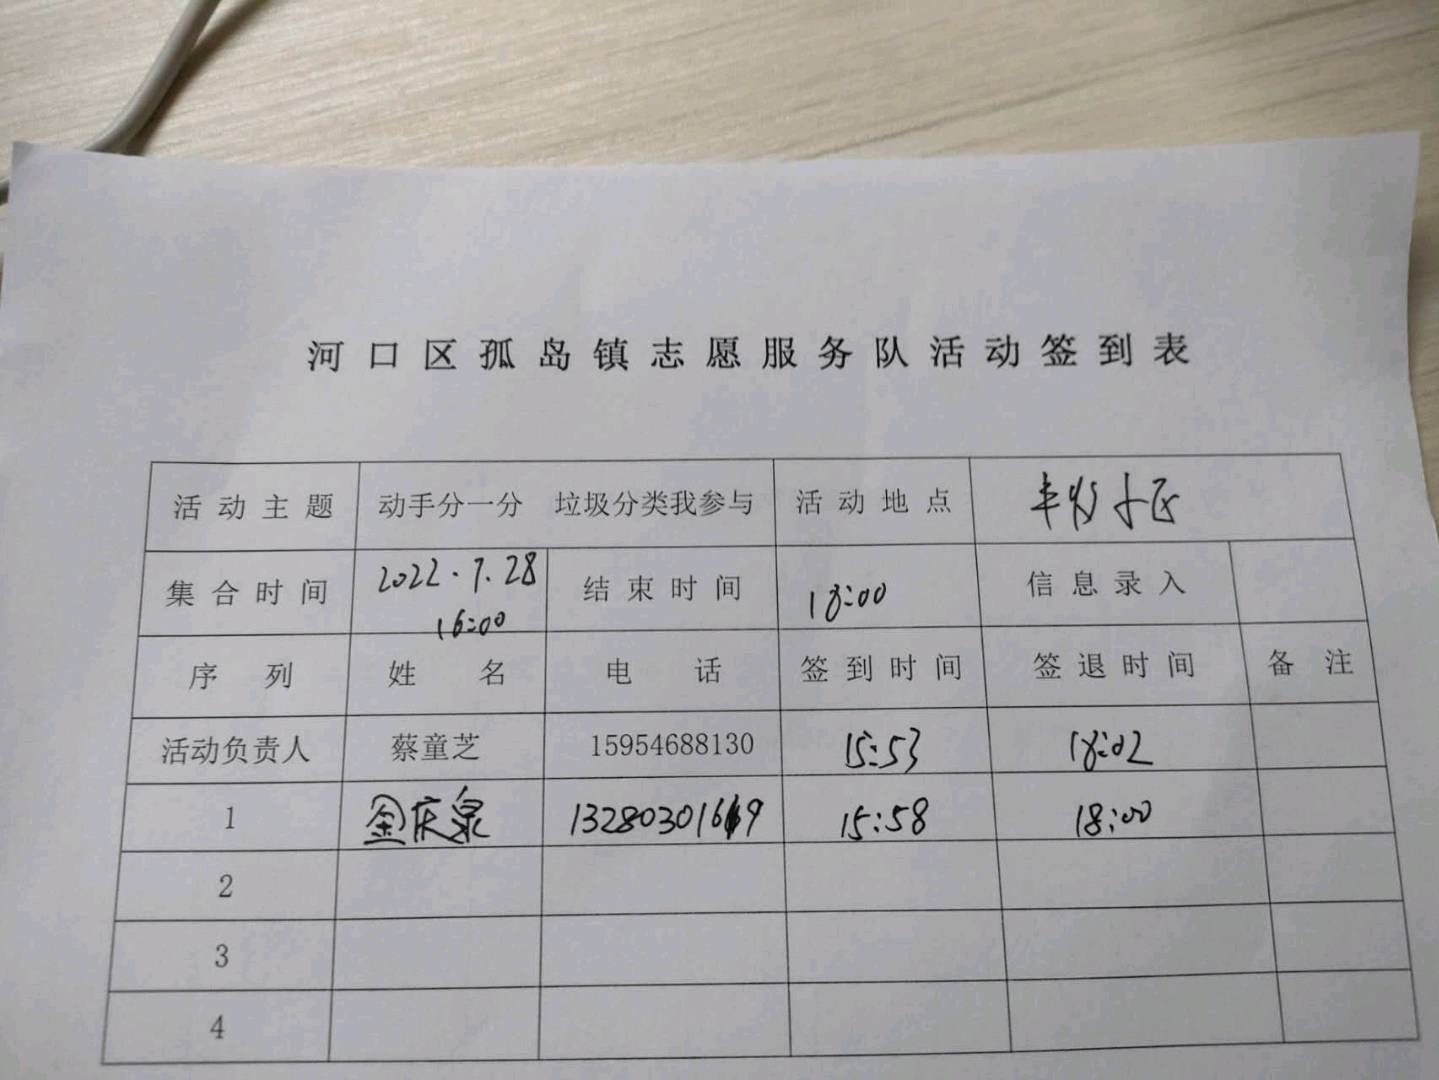 河口区孤岛镇志愿服务队活动签到表
活动主题 动手分一分 垃圾分类我参与 活动地点 小区
集合时间 2022.7.28 16:00 结束时间 18:00 信息录入
序列 姓名 电话 签到时间 签退时间 备注
活动负责人 蔡童芝 15954688130 15:53 18:02
1 庆泉 15:58 18:00
2
3
4